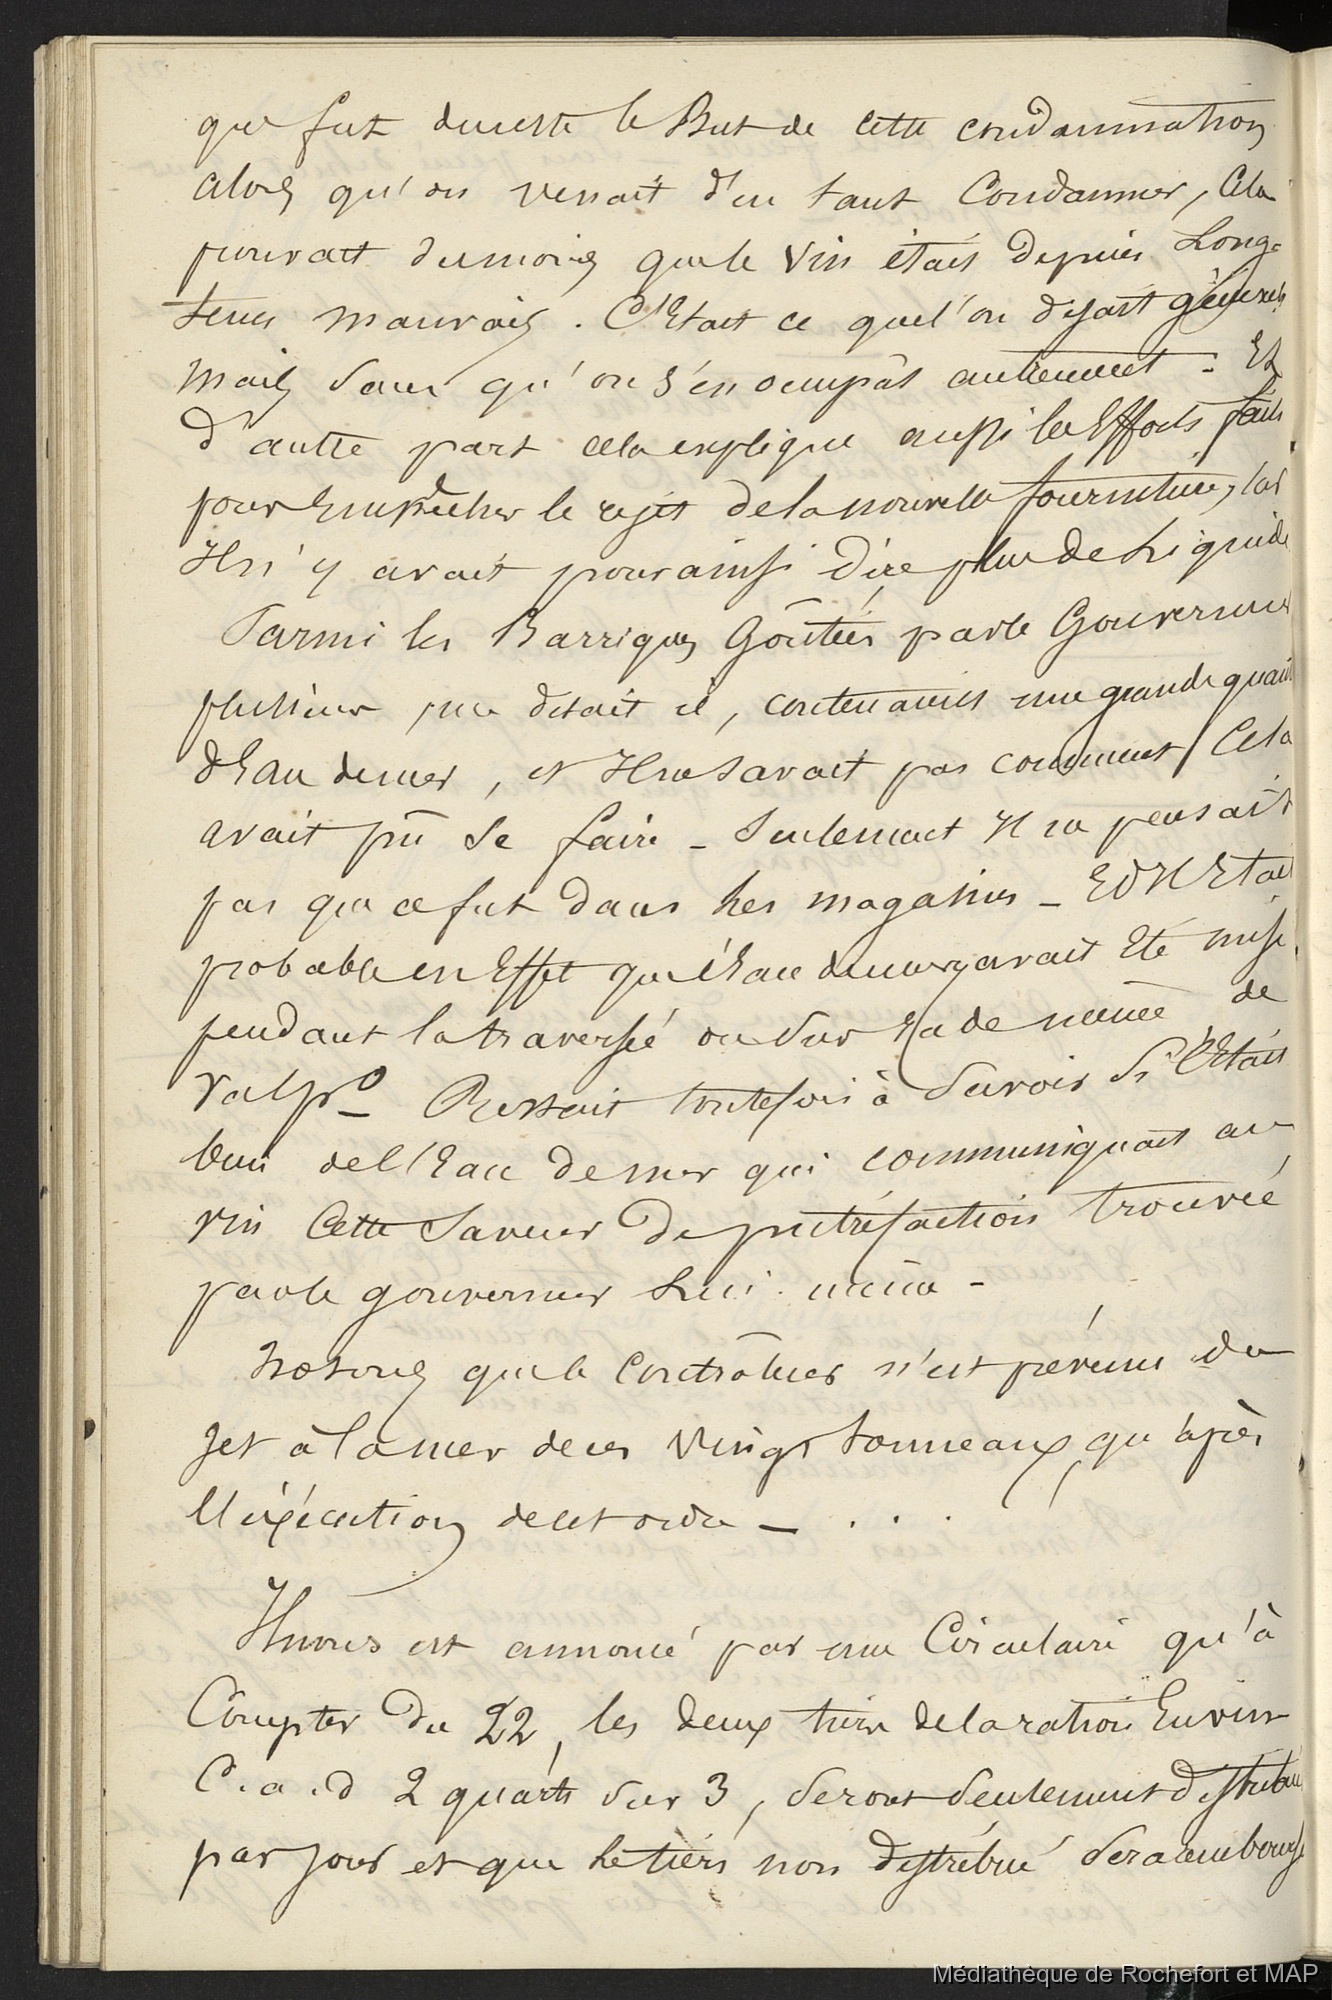 que fut du reste le But de cette condamnation
alors qu'on venait d'en tant Condamner, Cela
prouvait du moins que le Vin était depuis Long-
tems mauvais. C'Etait ce que l'on disait général
Mais sans qu'on s'en occupât autrement - Et
d'autre part cela explique aussi les Efforts faits
pour Empêcher le rejet de la nouvelle fourniture, car
Il n'y avait pour ainsi dire plus de Liquide
Parmi les Barriques Goûtées par le Gouverneur
plusieurs, disait il, contenaient une grande quan
d'Eau de mer, et Il ne savait pas comment Cela
avait pû se faire - Seulement Il ne pensait
pas que ce fut dans les magasins - Et Il Etait
probable en Effet que l'Eau de mer y avait Eté mise
pendant la traversée ou sur rade même de
Valpo - Restait toutefois à Savoir si C'Etait
bien de l'Eau de mer qui communiquait au
vin Cette Saveur de putréfaction trouvée
par le gouverneur Lui-même -
Notons que le Contrôleur n'est prévenu du
Jet à la mer de ces Vingt tonneaux, qu'après
l'éxécution de cet ordre - . . .
Il nous est annoncé par une Circulaire qu'à
Compter du 22, les deux tiers de la ration En vin
C.a.d 2 quarts sur 3, seront Seulement distribués
par jour et que le tiers non distribué sera remboursé
Médiathèque de Rochefort et MAP